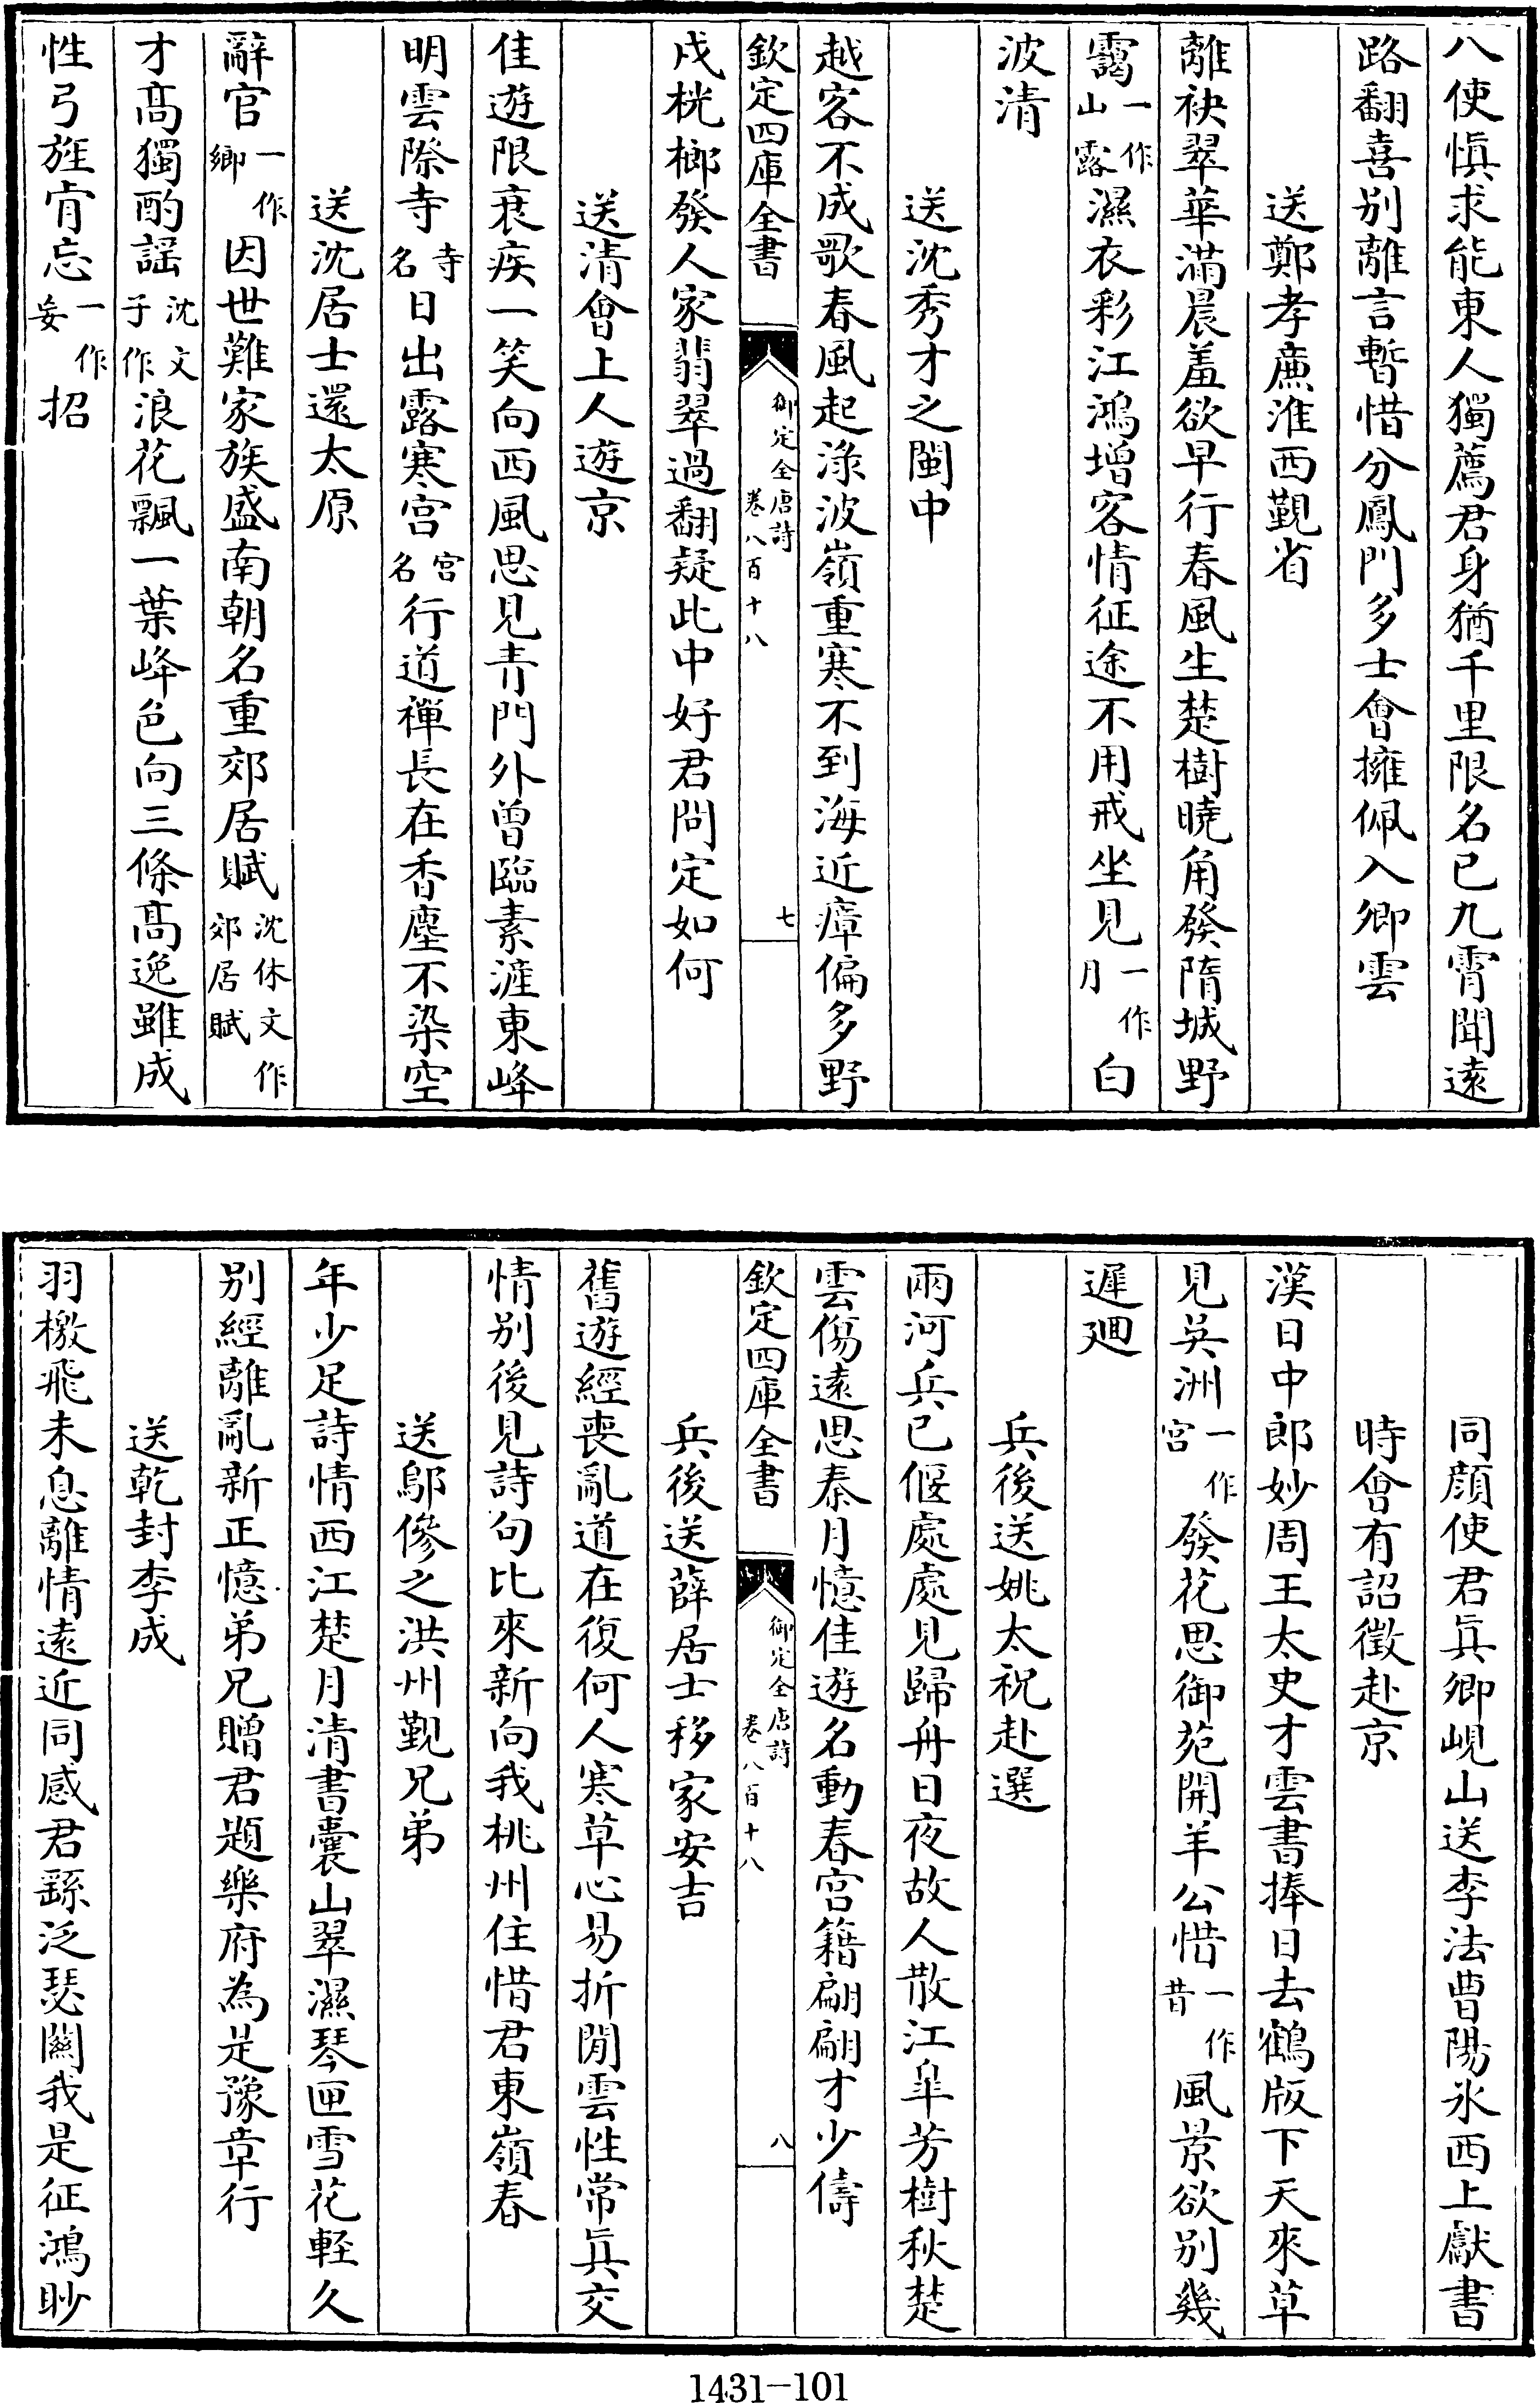 八使慎求能東人獨薦君身猶千里限名已九霄聞遠
路翻喜别離言暫惜分鳳門多士會擁佩入卿雲
送鄭孝亷淮西覲省
離袂翠華滿晨羞欲早行春風生楚樹曉角發隋城野
靄一作山露濕衣彩江鴻增客情征途不用戒坐見一作月白
波清
送沈秀才之閩中
越客不成歌春風起渌波嶺重寒不到海近瘴偏多野
欽定四庫全書
御定全唐詩
卷八百十八
七
戍桄榔發人家翡翠過翻疑此中好君問定如何
送清會上人遊京
佳遊限衰疾一笑向西風思見青門外曾臨素滻東峰
明雲際寺寺名日出露寒宫宫名行道禪長在香塵不染空
送沈居士還太原
辭官一作鄉因世難家族盛南朝名重郊居賦沈休文作郊居賦
才髙獨酌謡沈文子作浪花飄一葉峰色向三條髙逸雖成
性弓旌肯忘一作妄招
同顔使君真卿峴山送李法曹陽氷西上獻書
時會有詔徵赴京
漢日中郎妙周王太史才雲書捧日去鶴版下天來草
見吳洲一作宫發花思御苑開羊公惜一作昔風景欲别幾
遲廻
兵後送姚太祝赴選
兩河兵已偃處處見歸舟日夜故人散江臯芳樹秋楚
雲傷遠思秦月憶佳遊名動春宫籍翩翩才少儔
欽定四庫全書
御定全唐詩
卷八百十八
八
兵後送薛居士移家安吉
舊遊經喪亂道在復何人寒草心易折閒雲性常真交
情别後見詩句比來新向我桃州住惜君東嶺春
送鄔傪之洪州覲兄弟
年少足詩情西江楚月清書囊山翠濕琴匣雪花輕久
别經離亂新正憶弟兄贈君題樂府為是豫章行
送乾封李成
羽檄飛未息離情遠近同感君繇泛瑟關我是征鴻眇
1431—101